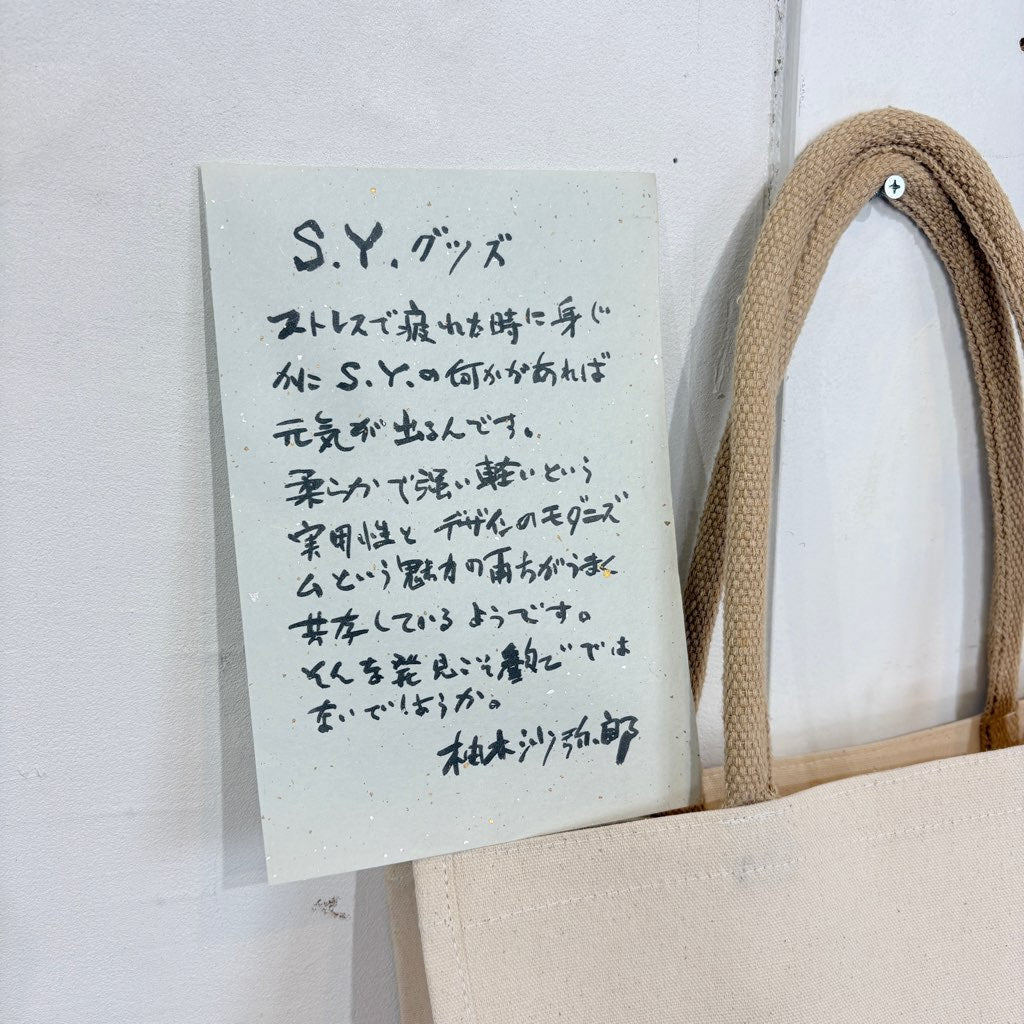 S.Y.グッズ
ストレスで疲れた時に身ぢ
かに S.Y.の何かがあれば
元気が出るんです。
柔らかで強い軽いという
実用性と デザインのモダニズ
ムという魅力の両方がうまく
共存しているようです。
そんな発見こそ では
ないでしょうか。
柚木沙弥郎